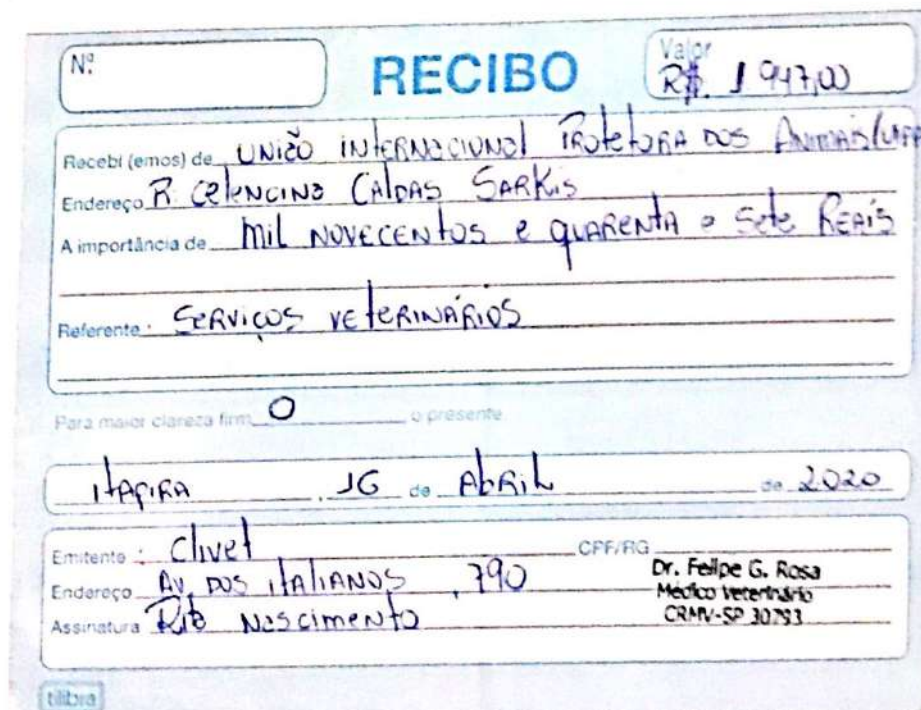 Nº
RECIBO
Valor
R$. 1 947,00
Recebi (emos) de UNIÃO INTERNACIONAL PROTETORA DOS ANIMAIS/UIPA
Endereço R CELENCINA CALDAS SARKIS
A importância de Mil NOVECENTOS e QUARENTA e Sete REAIS
Referente: SERVIÇOS VETERINÁRIOS
Para maior clareza firm O o presente.
ITAPIRA, 16 de AbRiL de 2020
Emitente: Clivet CPF/RG
Endereço AV. DOS ITALIANOS, 790
Dr. Felipe G. Rosa
Médico Veterinário
CRMV-SP 30793
Assinatura Rita Nascimento
tilibra